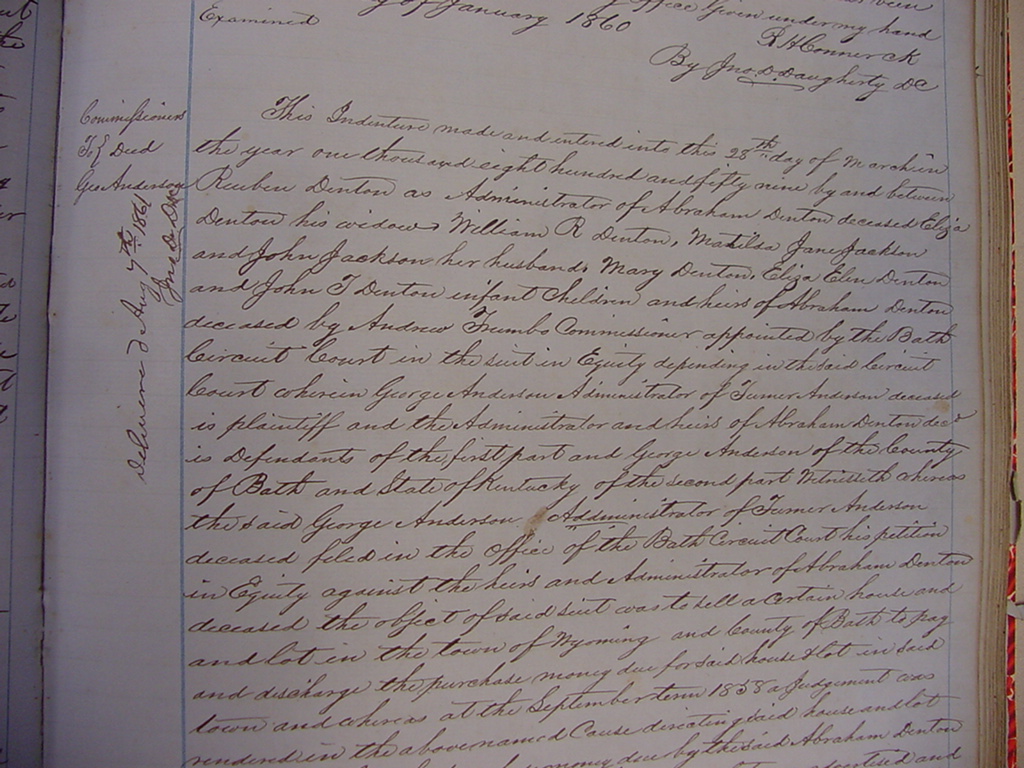 office Given under my hand
y of January 1860
Examined
R H Conner ck
By Jno. D. Daugherty DC
Commissioners
To } Deed
Geo Anderson
Delivered Aug 7th 1861
This Indenture made and entered into this 28th day of March in
the year one thousand eight hundred and fifty nine by and between
Reuben Denton as Administrator of Abraham Denton deceased Eliza
Denton his widow, William R Denton, Matilda Jane Jackson
and John Jackson her husband, Mary Denton, Eliza Elen Denton
and John T Denton infant Children and heirs of Abraham Denton
deceased by Andrew Trumbo Commissioner appointed by the Bath
Circuit Court in the suit in Equity depending in the said Circuit
Court wherein George Anderson Administrator of Turner Anderson deceased
is plaintiff and the Administrator and heirs of Abraham Denton decd
is Defendants of the first part and George Anderson of the County
of Bath and State of Kentucky of the second part Witnesseth whereas
the said George Anderson Addministrator of Turner Anderson
deceased filed in the office of the Bath Circuit Court his petition
in Equity against the heirs and Administrator of Abraham Denton
deceased the object of said suit was to sell a certain house and
and lot in the town of Wyoming and County of Bath to pay
and discharge the purchase money due for said house & lot in said
town and whereas at the September term 1858 a Judgement was
rendered in the above named Cause directing said house and lot
money due by the said Abraham Denton
and